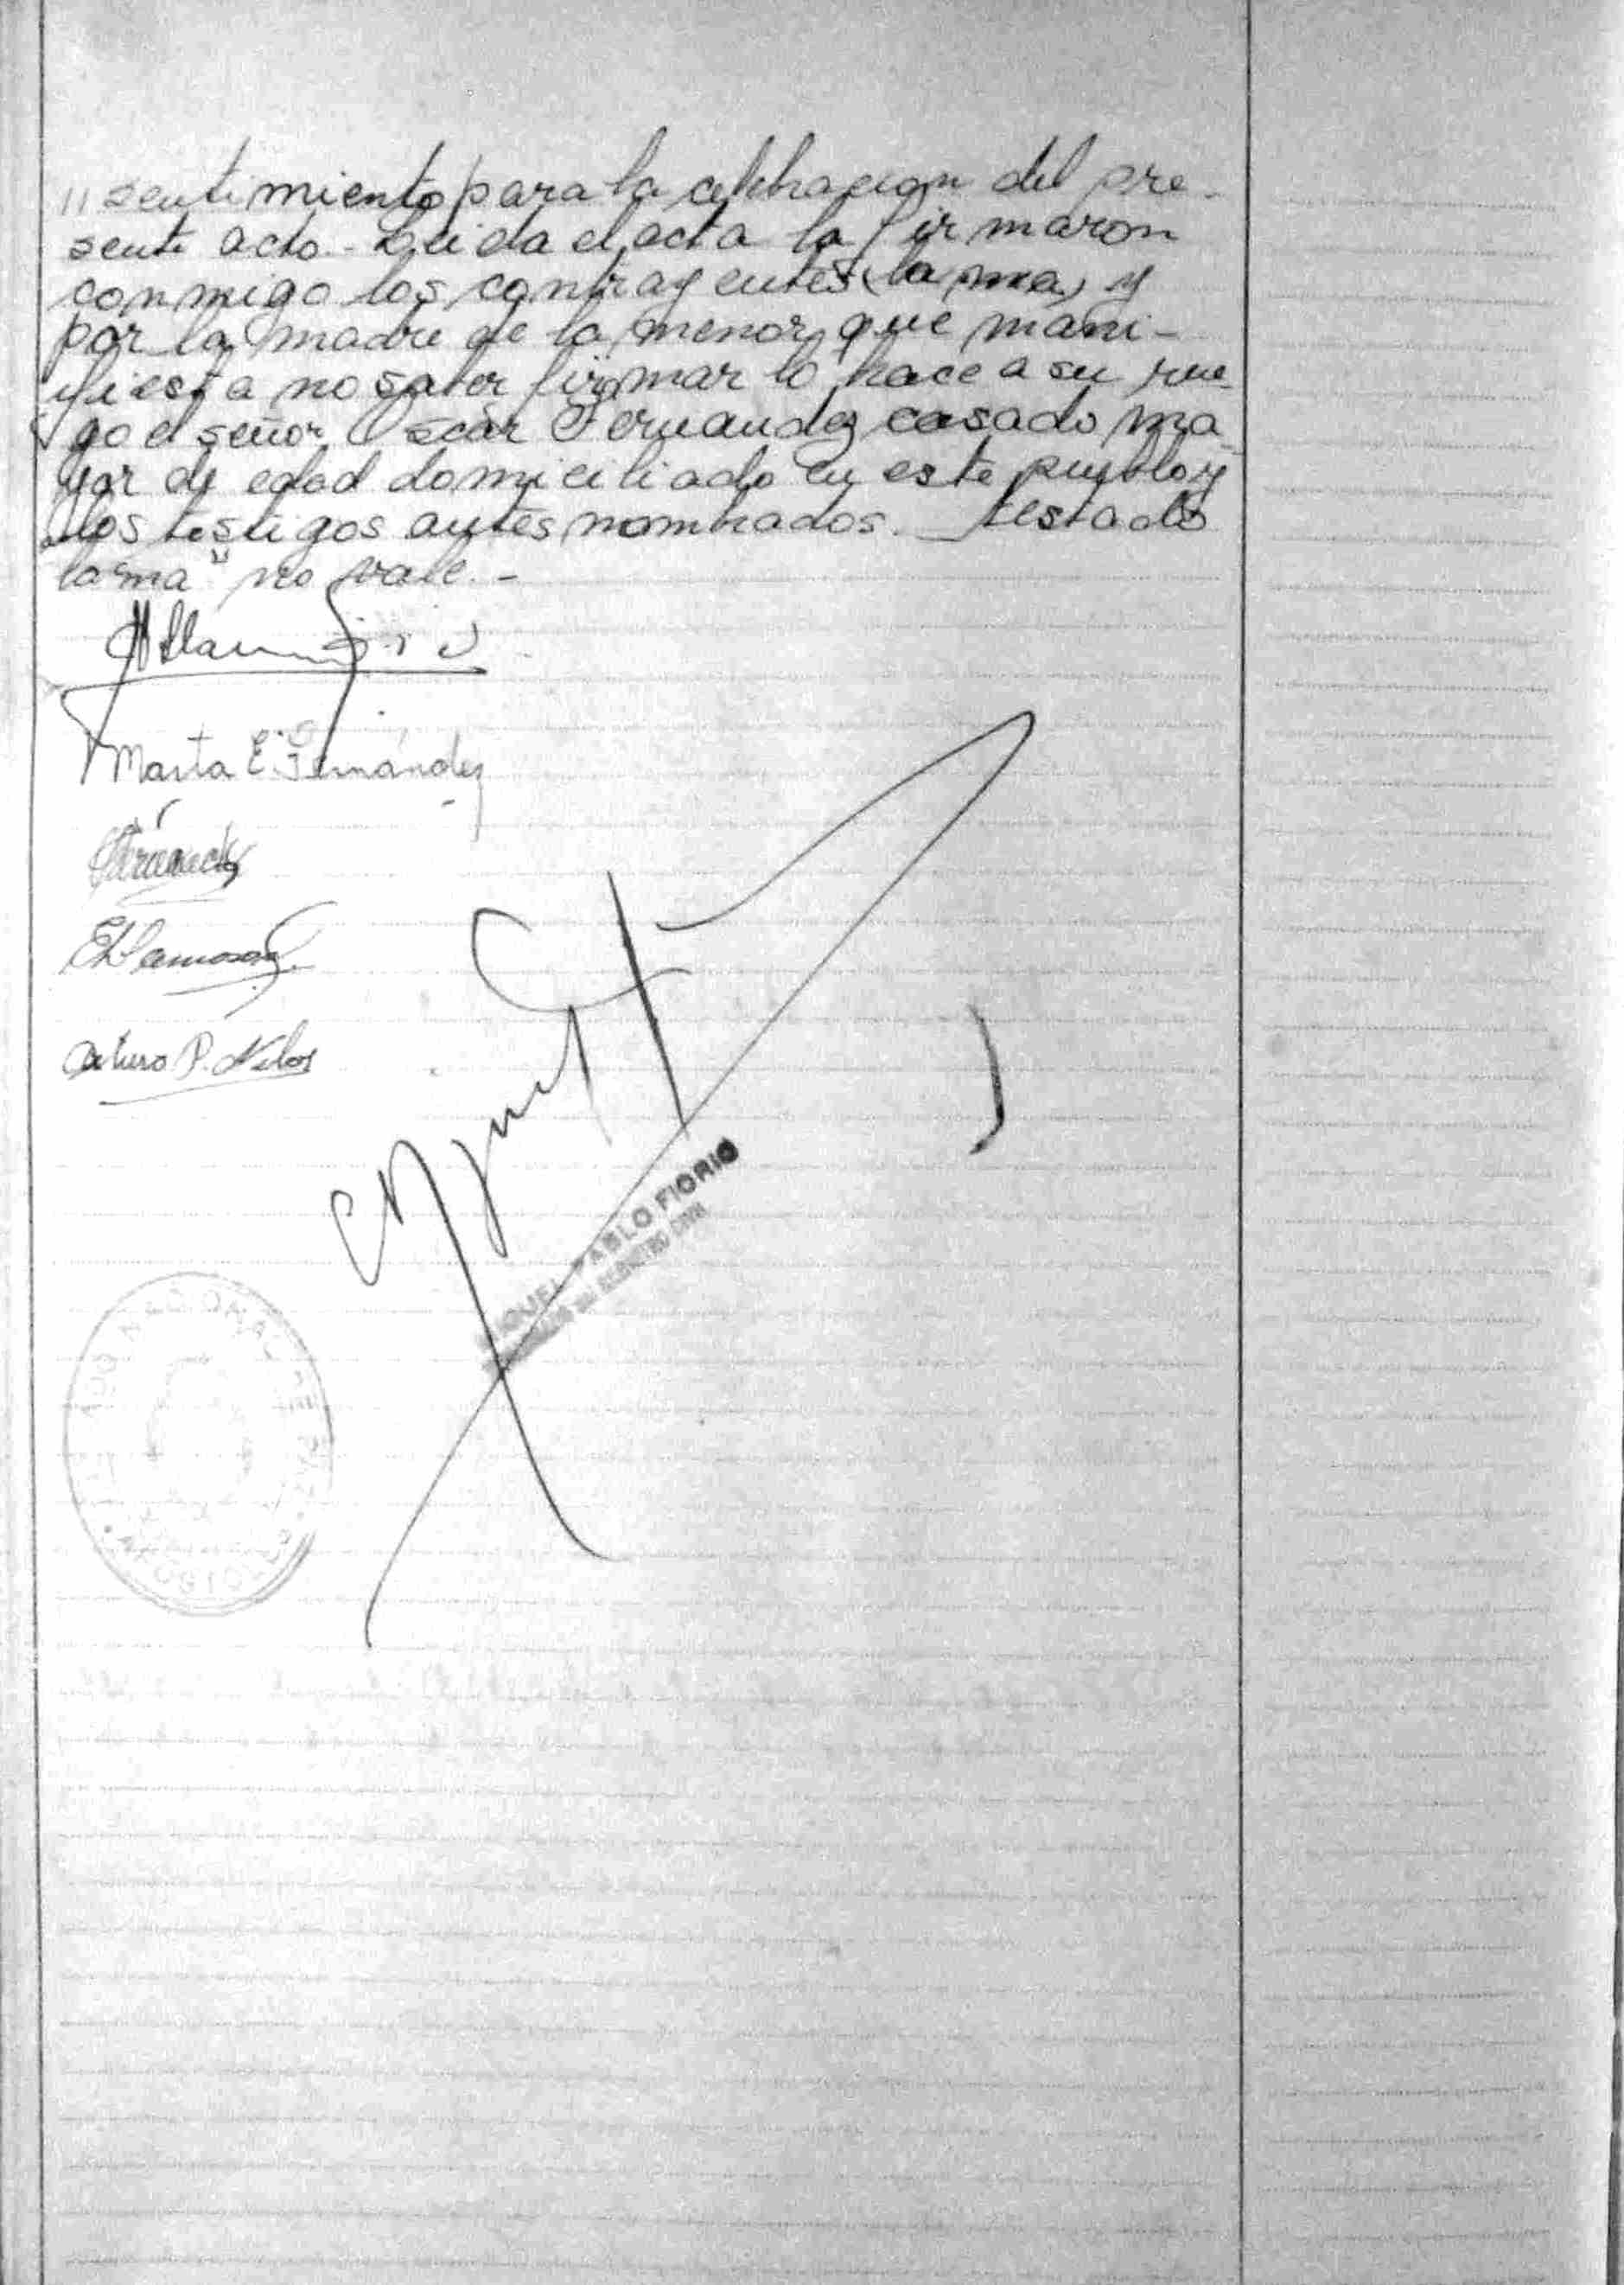 "sentimiento para la celebracion del pre-
sente acto.- Leida el acta la firmaron
conmigo los contrayentes (la ma) y
por la madre de la menor que mani-
fiesta no saber firmar lo hace a su rue-
go el señor Oscar Fernandez casado ma-
yor de edad domiciliado en este pueblo y
los testigos antes nombrados. Testado
"la ma" no vale.-
Marta E. Fernández
Arturo P.
PABLO FIORIO
REGISTRO CIVIL
NACIONAL DE